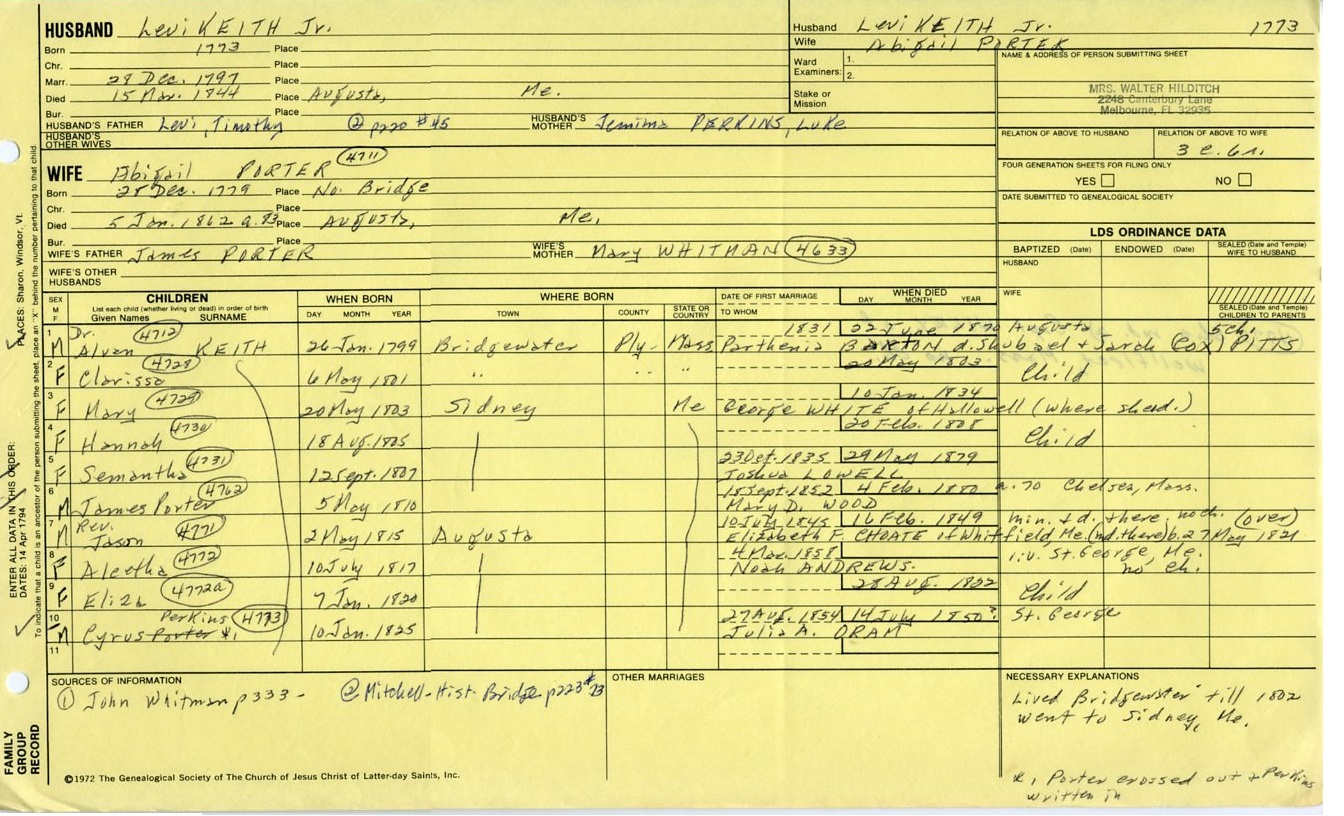 HUSBAND Levi KEITH Jr.
Born 1773 Place
Chr. Place
Marr. 28 Dec. 1797 Place
Died 15 Mar. 1844 Place Augusta, Me.
Bur. Place
HUSBAND'S FATHER Levi, Timothy ② p220 #45 HUSBAND'S MOTHER Jemima PERKINS, Luke
HUSBAND'S OTHER WIVES
Husband Levi KEITH Jr. 1773
Wife Abigail PORTER
Ward Examiners: 1.
2.
Stake or Mission
NAME & ADDRESS OF PERSON SUBMITTING SHEET
MRS. WALTER HILDITCH
2248 Canterbury Lane
Melbourne, FL 32935
RELATION OF ABOVE TO HUSBAND RELATION OF ABOVE TO WIFE
3 c. 6 r.
FOUR GENERATION SHEETS FOR FILING ONLY
YES NO
DATE SUBMITTED TO GENEALOGICAL SOCIETY
WIFE Abigail PORTER 4711
Born 28 Dec. 1779 Place No. Bridge
Chr. Place
Died 5 Jan. 1862 a. 83 Place Augusta, Me.
Bur. Place
WIFE'S FATHER James PORTER WIFE'S MOTHER Mary WHITMAN 4633
WIFE'S OTHER HUSBANDS
LDS ORDINANCE DATA
BAPTIZED (Date) ENDOWED (Date) SEALED (Date and Temple) WIFE TO HUSBAND
HUSBAND
WIFE
SEALED (Date and Temple) CHILDREN TO PARENTS
SEX M F CHILDREN WHEN BORN WHERE BORN DATE OF FIRST MARRIAGE WHEN DIED
List each child (whether living or dead) in order of birth
Given Names SURNAME DAY MONTH YEAR TOWN COUNTY STATE OR COUNTRY TO WHOM DAY MONTH YEAR
1 Dr. 4712 1831 22 June 1870 Augusta 5 ch.
M Alvan KEITH 26 Jan. 1799 Bridgewater Ply. Mass Parthenia BAXTON d. Shubael + Sarah (Cox) PITTS
2 4728 20 May 1803
F Clarissa 6 May 1801 " " " " Child
3 4729 10 Jan. 1834
F Mary 20 May 1803 Sidney Me George WHITE of Hallowell (where she d.)
4 4730 20 Feb. 1808
F Hannah 18 Aug. 1805 Child
5 4731 23 Oct. 1835 29 May 1879
F Semantha 12 Sept. 1807 Joshua LOWELL
6 4762 15 Sept. 1852 4 Feb. 1880 a. 70 Chelsea, Mass.
M James Porter 5 May 1810 Mary D. WOOD
7 Rev. 4771 10 July 1845 16 Feb. 1849 min. + d. there, no ch. (over)
M Jason 2 May 1815 Augusta Elizabeth F. CHOATE of Whitfield Me. (md. there) b. 27 May 1821
8 4772 4 Mar. 1858 r.v. St. George, Me.
F Aleetha 10 July 1817 Noah ANDREWS. no ch.
9 4772a 28 Aug. 1822
F Eliza 7 Jan. 1820 Child
10 Perkins 4773 27 Aug. 1854 14 July 1850? St. George
M Cyrus Porter *1 10 Jan. 1825 Julia A. ORAM
11
SOURCES OF INFORMATION
① John Whitman p 333 - ② Mitchell-Hist. Bridge p223 #73
OTHER MARRIAGES
NECESSARY EXPLANATIONS
Lived Bridgewater till 1802
went to Sidney, Me.
*1 Porter crossed out + Perkins
written in
©1972 The Genealogical Society of The Church of Jesus Christ of Latter-day Saints, Inc.
FAMILY GROUP RECORD
ENTER ALL DATA IN THIS ORDER:
DATES: 14 Apr 1794
PLACES: Sharon, Windsor, Vt.
To indicate that a child is an ancestor of the person submitting the sheet, place an "X" behind the number pertaining to that child.